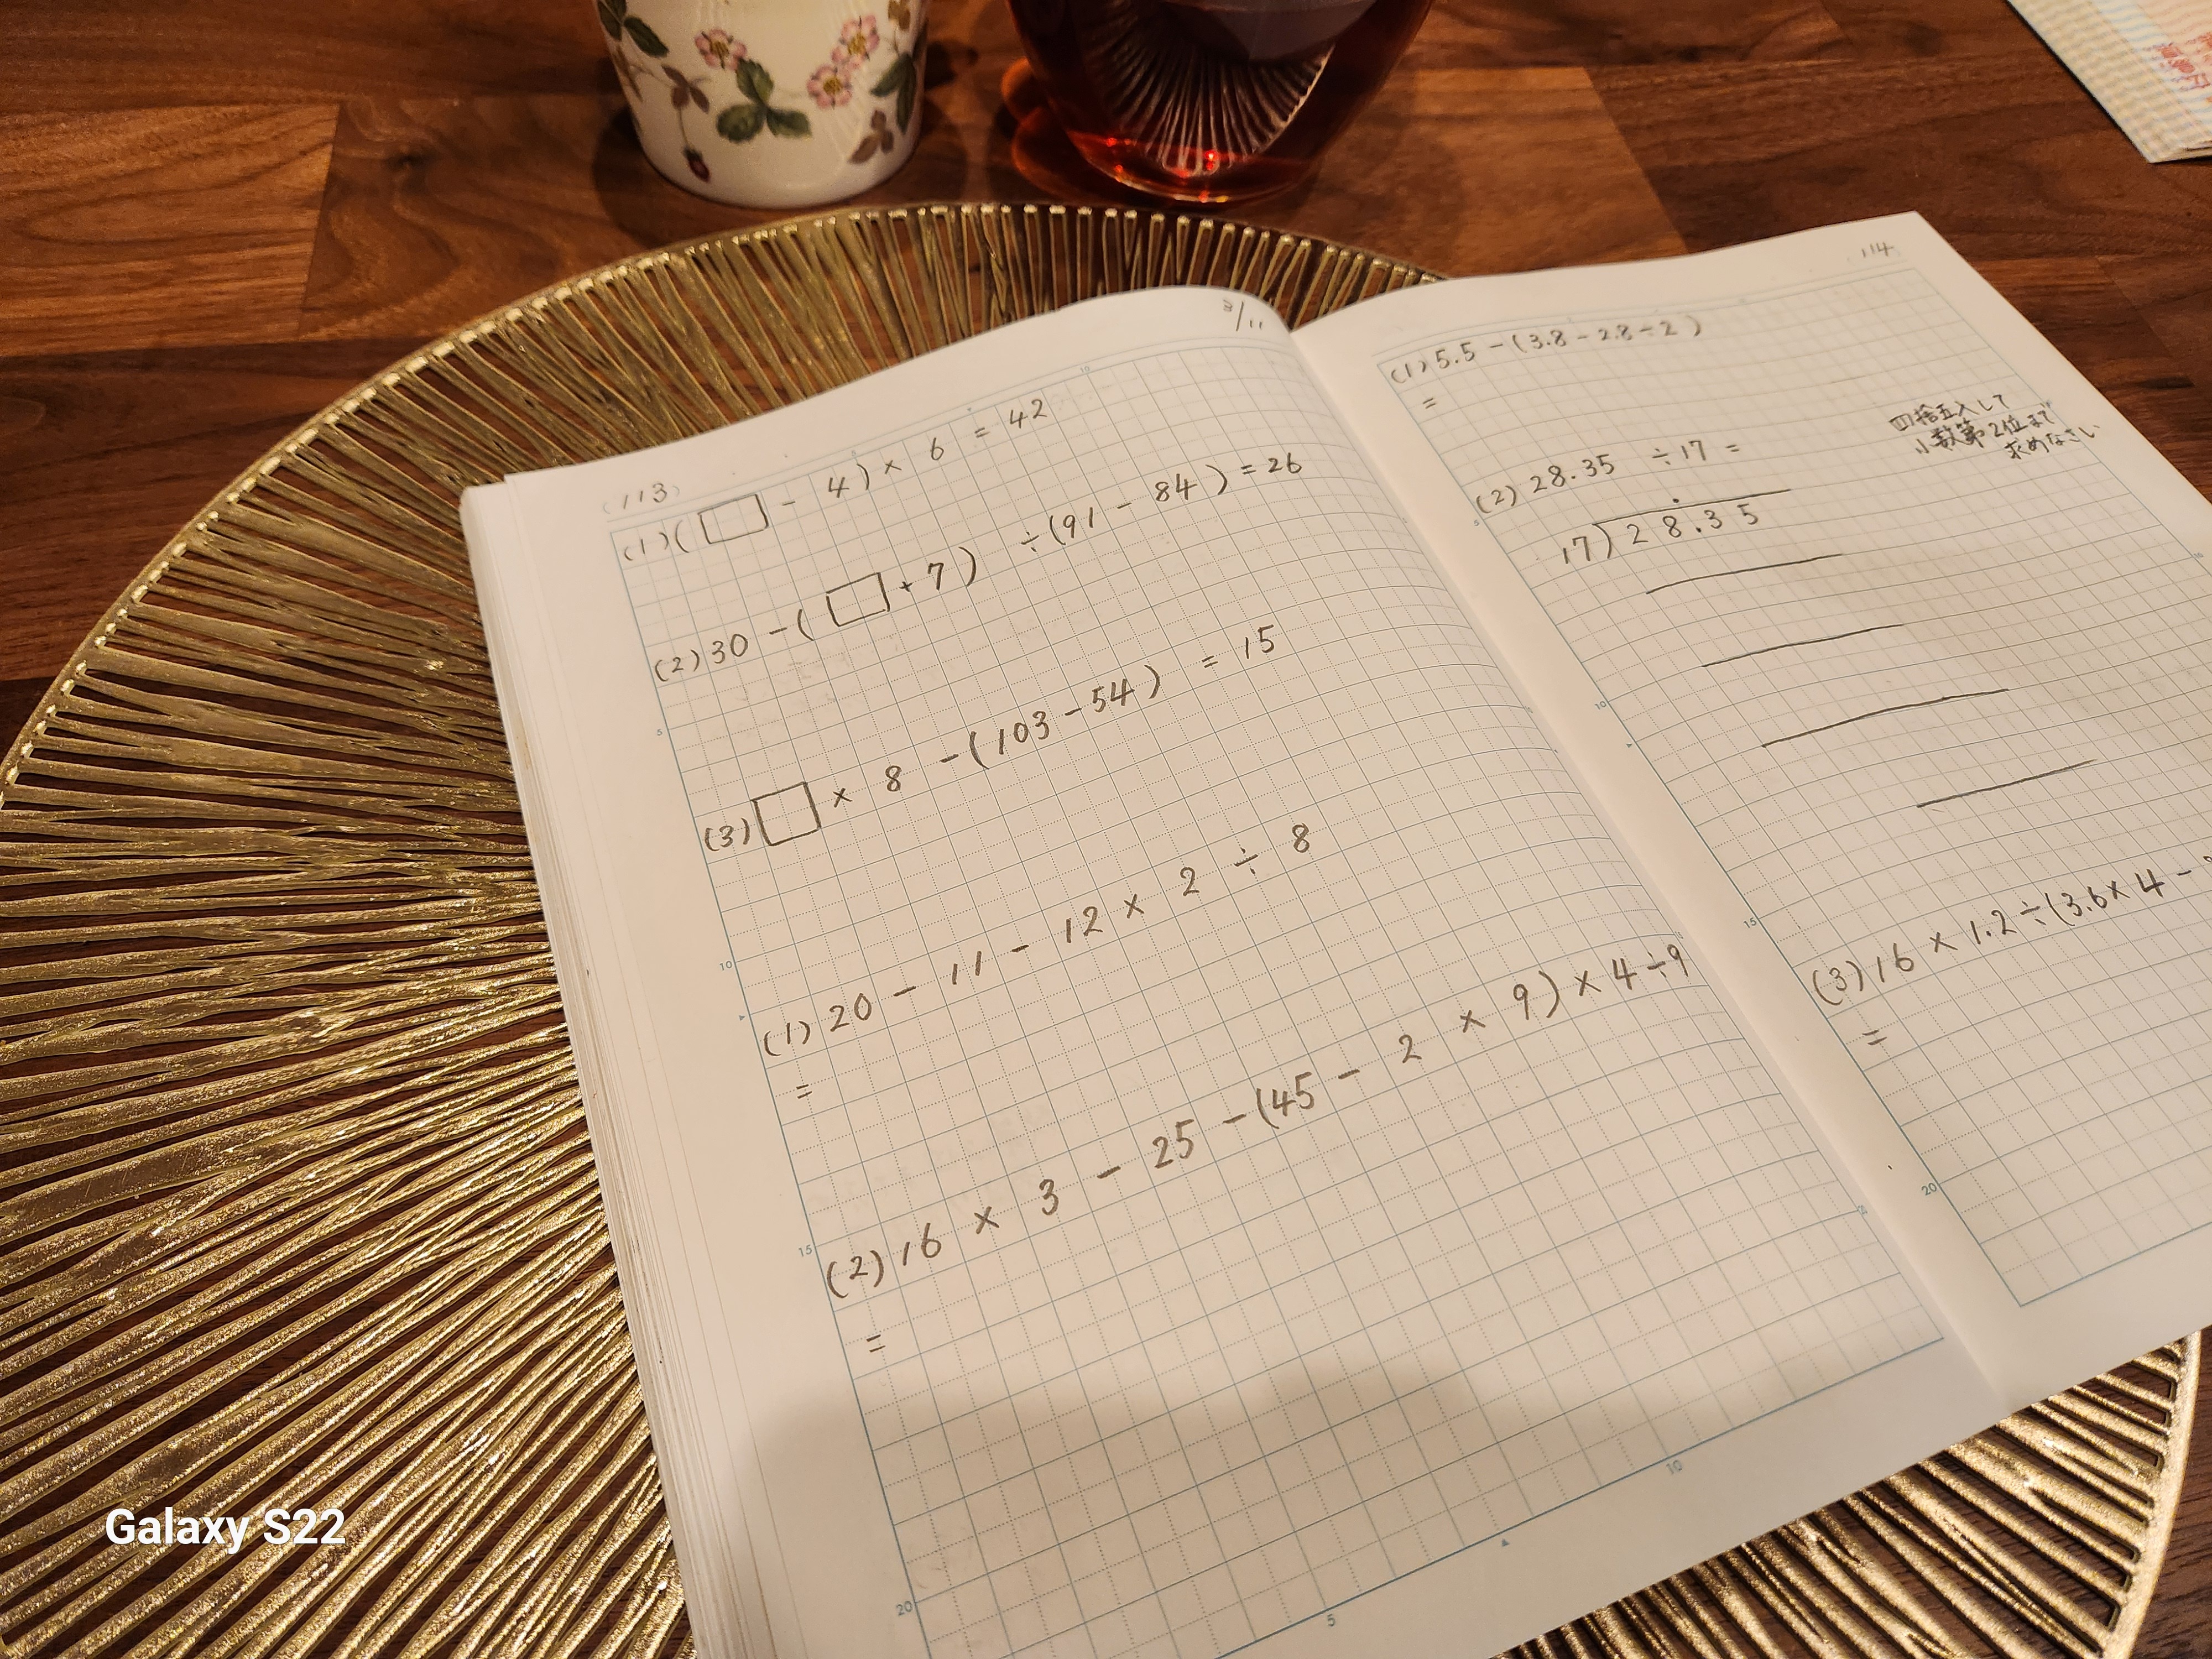 3/11
(113)
(1)(□ - 4) × 6 = 42
(2) 30 - (□ + 7) ÷ (91 - 84) = 26
(3) □ × 8 - (103 - 54) = 15
(1) 20 - 11 - 12 × 2 ÷ 8
=
(2) 16 × 3 - 25 - (45 - 2 × 9) × 4 ÷ 9
=
5
10
15
20
5
10
10
114
(1) 5.5 - (3.8 - 2.8 ÷ 2)
=
四捨五入して
小数第2位まで
求めなさい
(2) 28.35 ÷ 17 =
17)28.35
(3) 16 × 1.2 ÷ (3.6 × 4 -
=
5
10
15
20
Galaxy S22